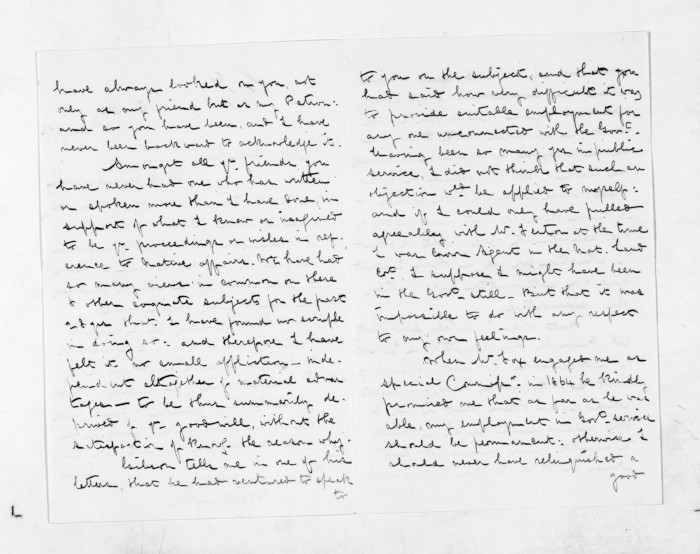 have always looked on you, not
only as my friend but as my Patron:
and so you have been, and I have
never been backward to acknowledge it.
Amongst all yr. friends you
have never had one who has written
or spoken more than I have done, in
support of what I knew or imagined
to be yr. proceedings or wishes in ref-
erence to Native affairs. We have had
so many views in common on these
& other cognate subjects for the past
yrs that I have found no scruple
in doing so: and therefore I have
felt it no small affliction - inde-
pendent altogether of material advan
tages - to be thus summarily de-
prived of yr. goodwill, without the
satisfaction of knowg. the reason why.
tells me in one of his
letters, that he had ventured to speak
to
to you on the subject, and that you
had said how very difficult it was
to provide suitable employment for
any one unconnected with the Govt.
Having been so many yrs in public
service, I did not think that such an
objection wd. be applied to myself:
and if I could only have pulled
agreeably with Mr. Fenton at the time
I was Agent in the Nat. Land
Ct. I suppose I might have been
in the Govt. still - But that it was
impossible to do with any respect
to my own feelings.
When Mr. Fox engaged me as
special Commissr. in 1864 he kindly
promised me that as far as he was
able, my employment in Govt. service
should be permanent: otherwise I
should never have relinquished a
good